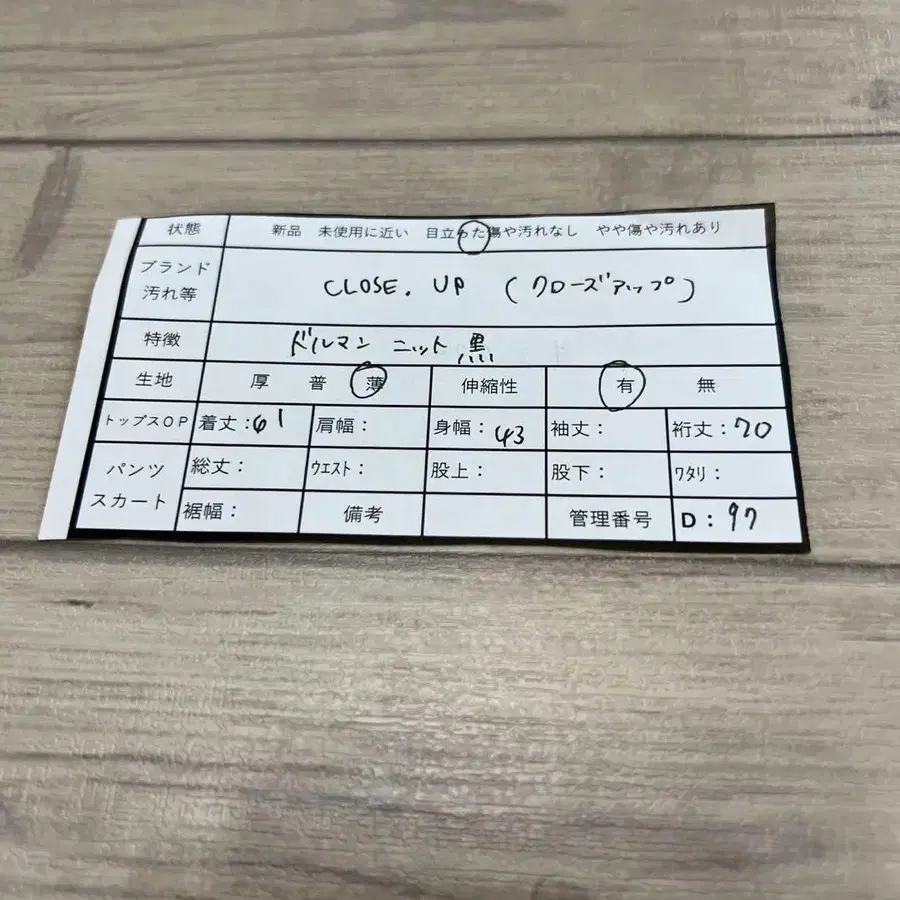 状態 新品 未使用に近い 目立った傷や汚れなし やや傷や汚れあり
ブランド
汚れ等 CLOSE. UP (クローズアップ)
特徴 ドルマン ニット 黒
生地 厚 普 薄 伸縮性 有 無
トップスOP 着丈:61 肩幅: 身幅:43 袖丈: 裄丈:70
パンツ
スカート 総丈: ウエスト: 股上: 股下: ワタリ:
裾幅: 備考 管理番号 D:97